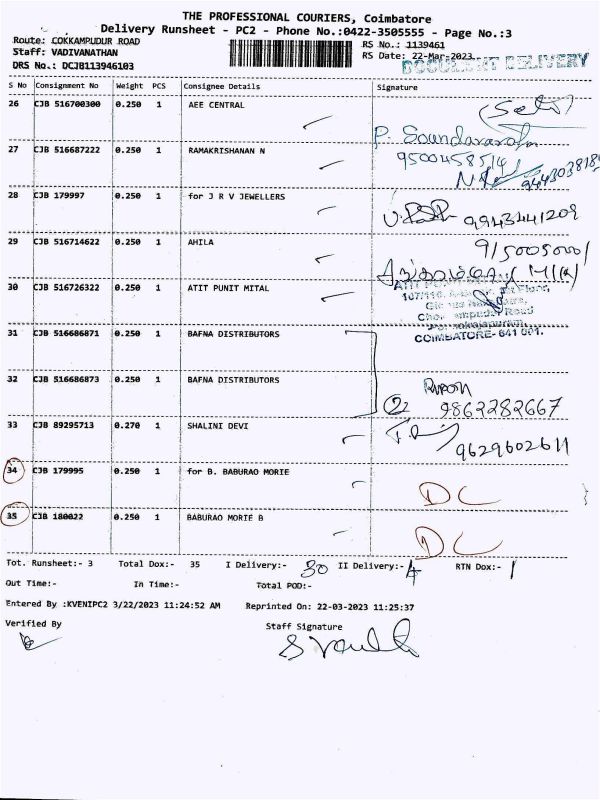 THE PROFESSIONAL COURIERS, Coimbatore
Delivery Runsheet - PC2 - Phone No.:0422-3505555 - Page No.:3
Route: COKKAMPUDUR ROAD
RS No.: 1139461
Staff: VADIVANATHAN
RS Date: 22-Mar-2023
DRS No.: DCJB113946103
DOCUMENT DELIVERY
S No Consignment No Weight PCS Consignee Details Signature
26 CJB 516700300 0.250 1 AEE CENTRAL
27 CJB 516687222 0.250 1 RAMAKRISHANAN N
9500458514
28 CJB 179997 0.250 1 for J R V JEWELLERS 9943441209
29 CJB 516714622 0.250 1 AHILA
30 CJB 516726322 0.250 1 ATIT PUNIT MITAL
COIMBATORE- 641 001.
31 CJB 516686871 0.250 1 BAFNA DISTRIBUTORS
32 CJB 516686873 0.250 1 BAFNA DISTRIBUTORS
2 9862282667
33 CJB 89295713 0.270 1 SHALINI DEVI
9629602611
34 CJB 179995 0.250 1 for B. BABURAO MORIE DC
35 CJB 180022 0.250 1 BABURAO MORIE B DC
Tot. Runsheet:- 3 Total Dox:- 35 I Delivery:- 30 II Delivery:- 4 RTN Dox:- 1
Out Time:- In Time:- Total POD:-
Entered By :KVENIPC2 3/22/2023 11:24:52 AM Reprinted On: 22-03-2023 11:25:37
Verified By Staff Signature